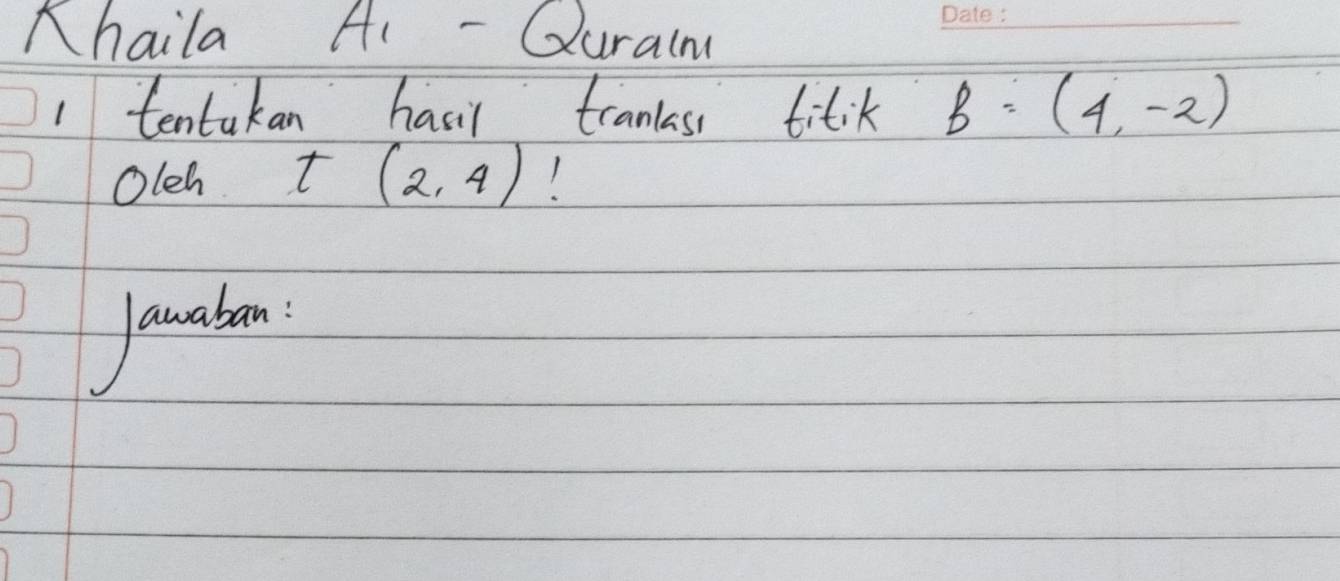 Khaila Al - Quraini
Date :
1 tentukan hasil tranlasi titik B = (4, -2)
Oleh T (2, 4) !
Jawaban :